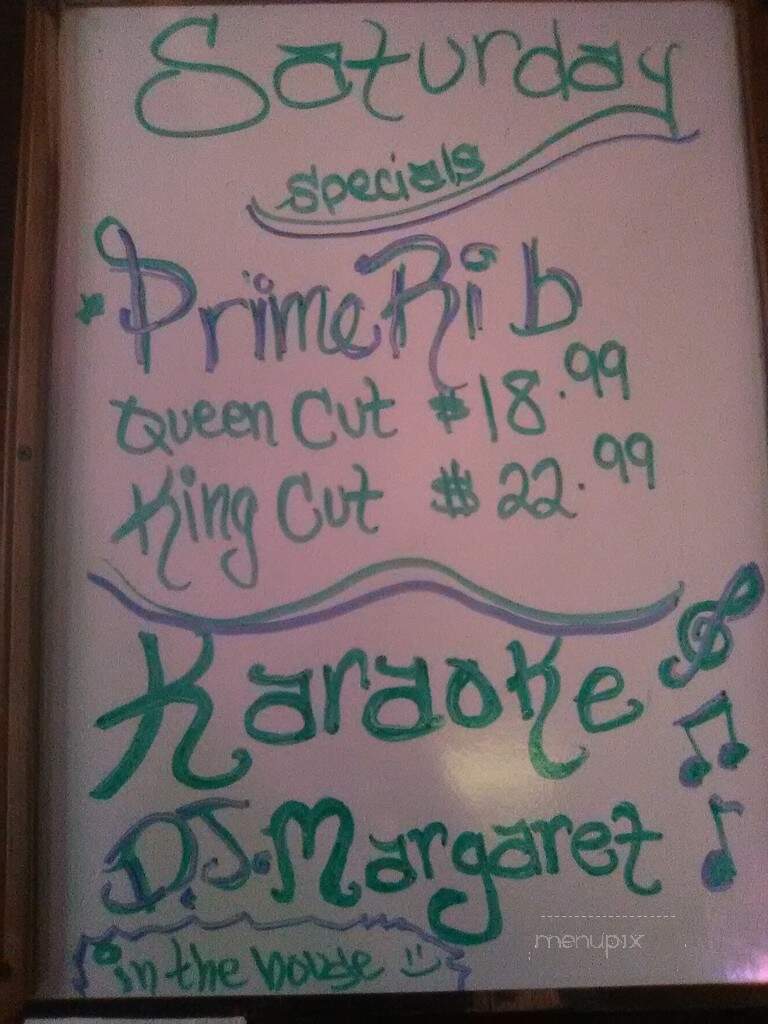 Saturday
specials
Prime Rib
Queen Cut $18.99
King Cut $22.99
Karaoke
D.J. Margaret
in the house
menupix